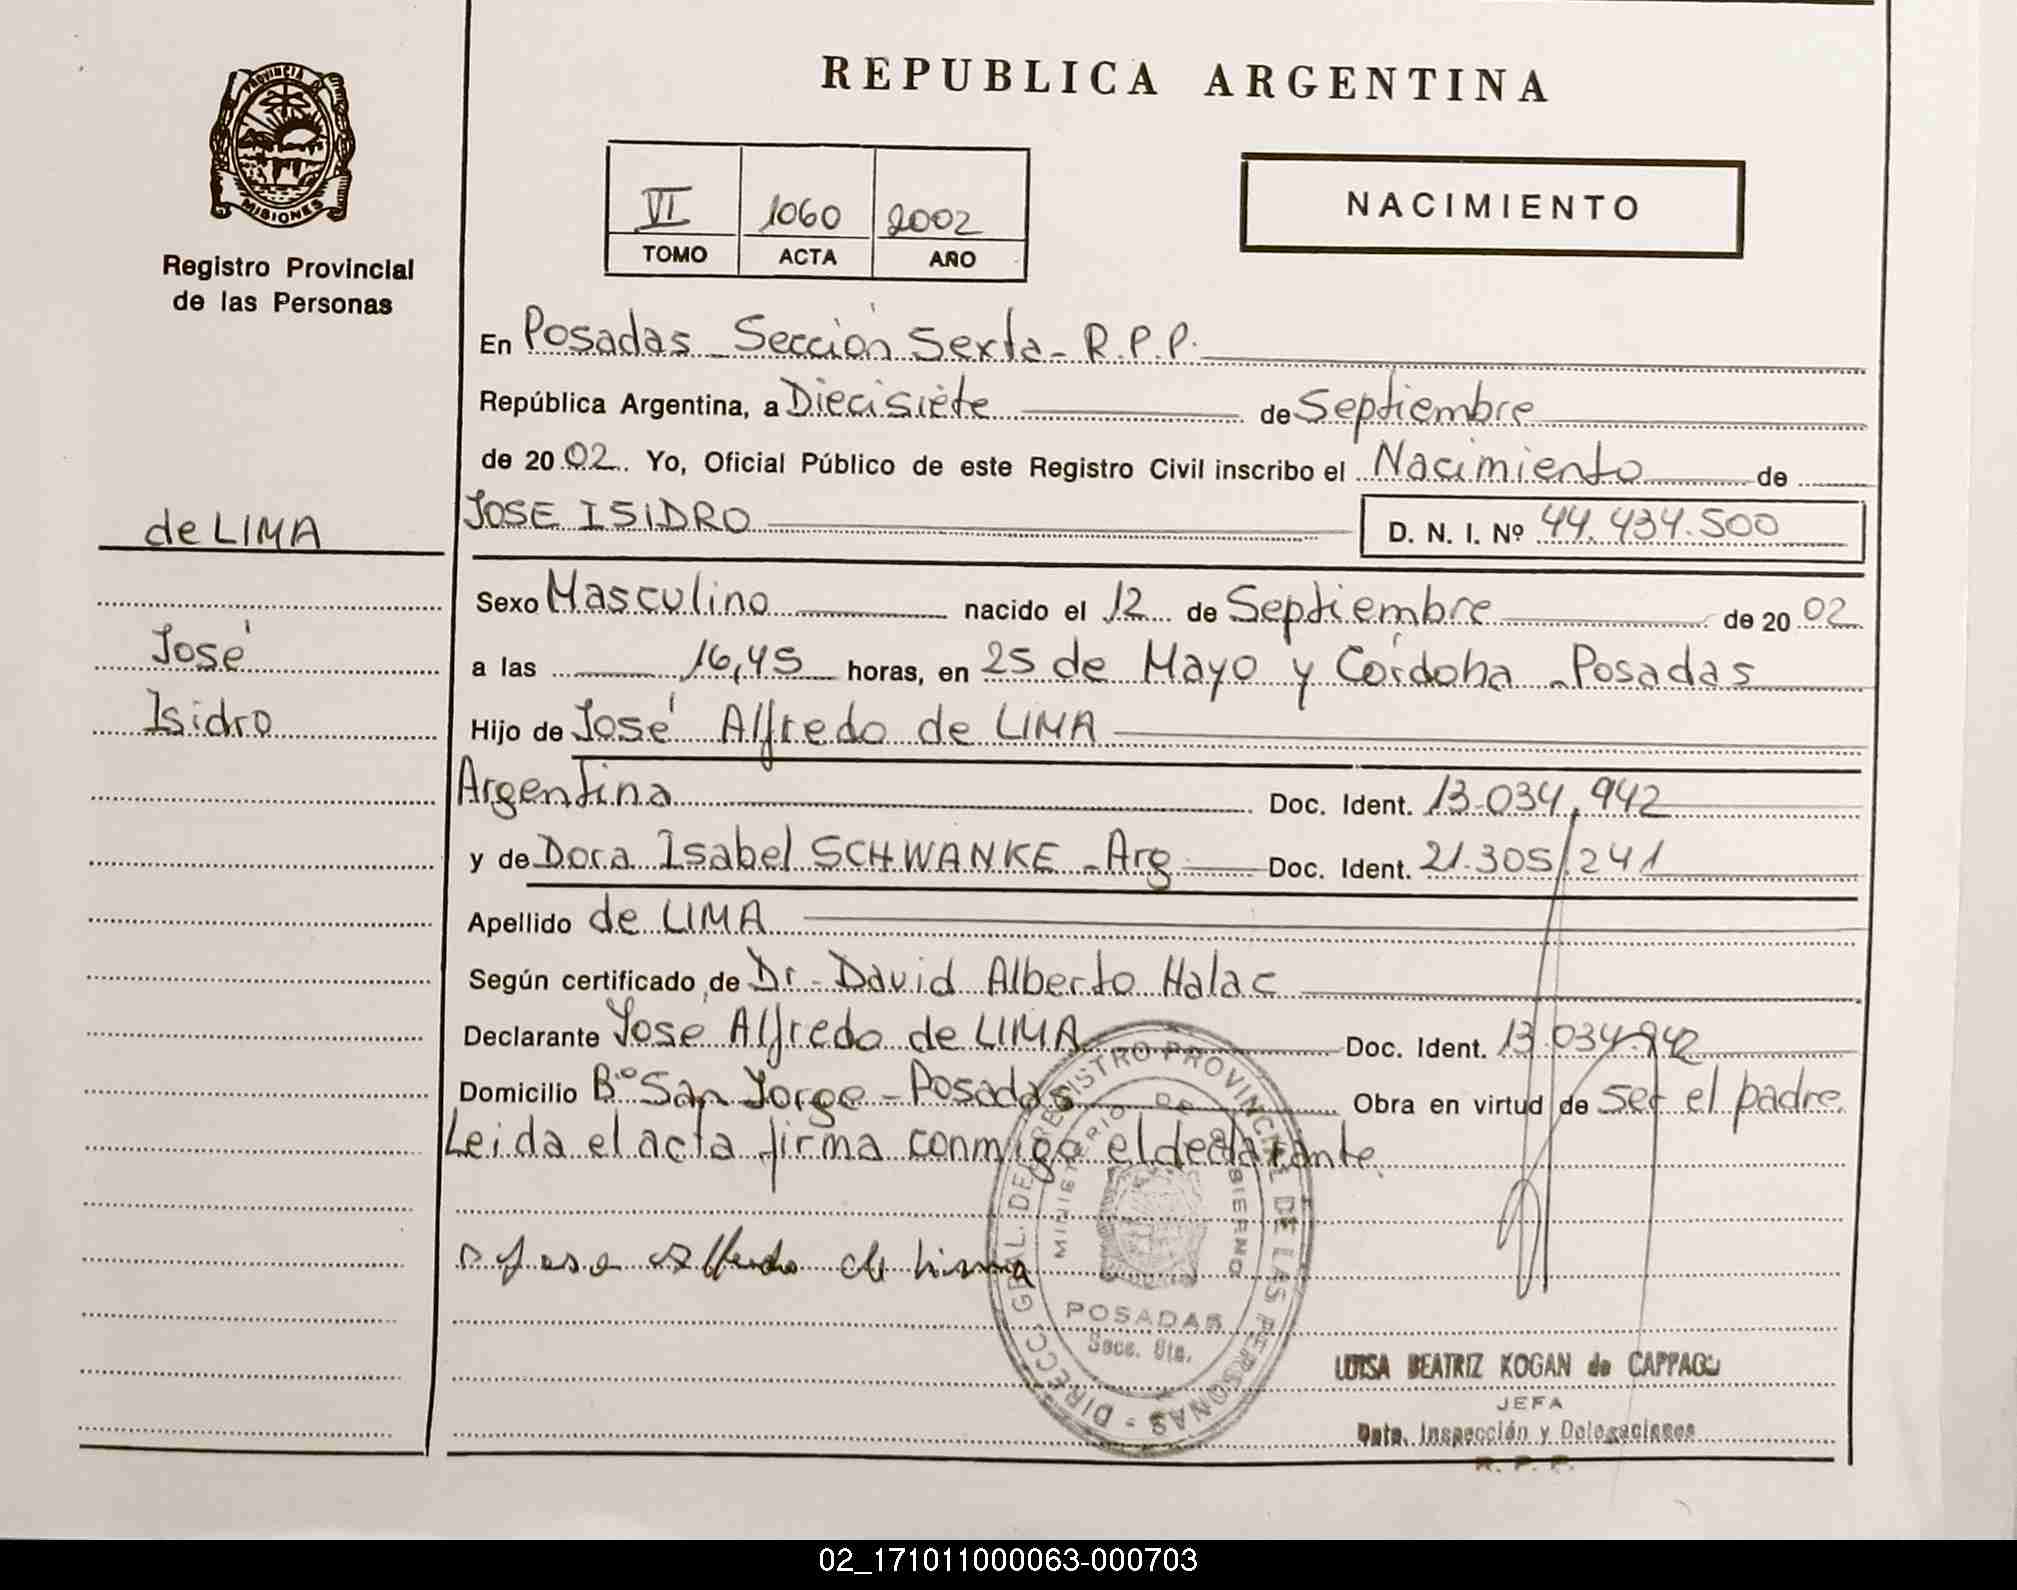 REPUBLICA ARGENTINA
PROVINCIA DE
MISIONES
Registro Provincial
de las Personas
VI 1060 2002
TOMO ACTA AÑO
NACIMIENTO
En Posadas - Sección Sexta - R.P.P.
República Argentina, a Diecisiete de Septiembre
de 2002. Yo, Oficial Público de este Registro Civil inscribo el Nacimiento de
de LIMA
JOSE ISIDRO D. N. I. Nº 44.434.500
Sexo Masculino nacido el 12 de Septiembre de 2002
José
a las 16,45 horas, en 25 de Mayo y Córdoba - Posadas
Isidro
Hijo de José Alfredo de LIMA
Argentina Doc. Ident. 13.034.942
y de Dora Isabel SCHWANKE - Arg Doc. Ident. 21.305.241
Apellido de LIMA
Según certificado de Dr. David Alberto Halac
Declarante Jose Alfredo de LIMA Doc. Ident. 13.034.942
Domicilio Bº San Jorge - Posadas Obra en virtud de ser el padre.
Leida el acta firma conmigo el declarante.
Jose Alfredo de Lima
DIRECC. GRAL. DEL REGISTRO PROVINCIAL DE LAS PERSONAS
MINISTERIO DE GOBIERNO
POSADAS
Secc. 6ta.
LUISA BEATRIZ KOGAN de CAPPAGU
JEFA
Dpto. Inspección y Delegaciones
R. P. P.
02_171011000063-000703